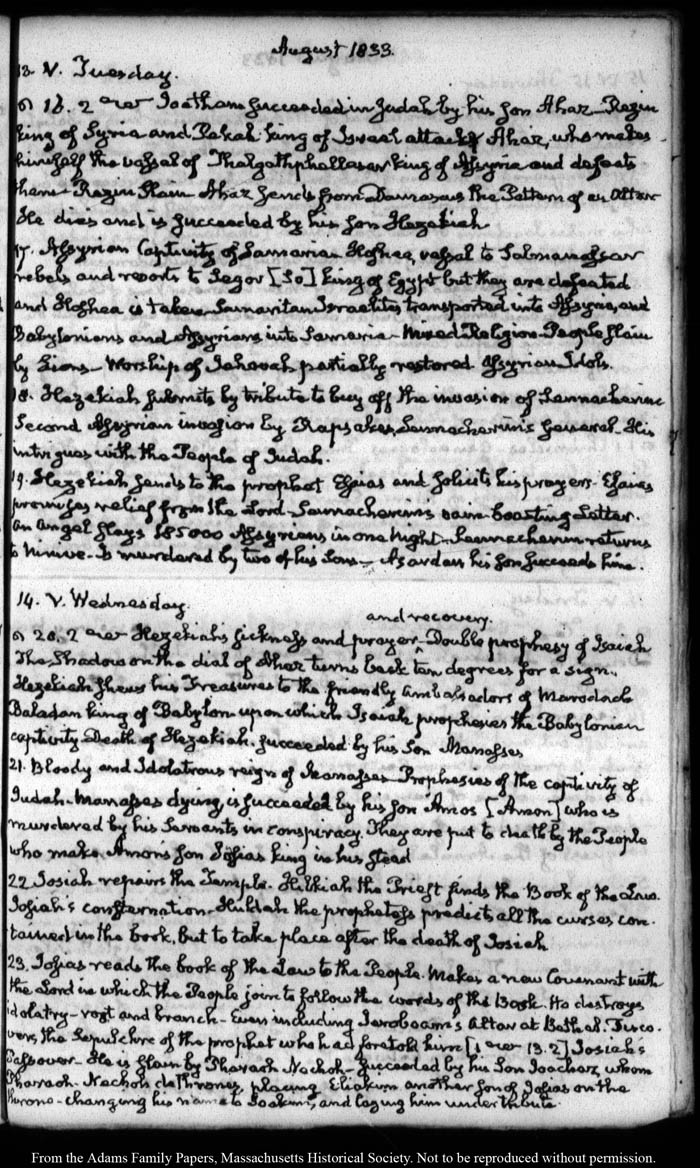 August 1833.
13. V. Tuesday.
16. 2 Joatham succeeded in Judah by his Son Ahaz_ Rezin
King of Syria and Pekah King of Israel attack Ahaz, who makes
himself the vassal of Thalgathphallasar King of Assyria and defeats
them_ Rezin slain Ahaz sends from Damascus the Pattern of an Altar
He dies and is succeeded by his Son Hezekiah
17. Assyrian Captivity of Samaria. Hoshea, vassal to Salmanassar
rebels and resorts to Segor [So] King of Egypt but they are defeated
and Hoshea is taken Samaritan Israelites transported into Assyria, and
Babylonians and Assyrians into Samaria_ Mixed Religion_ People slain
by Lions_ Worship of Jehovah partially restored Assyrian Idols.
18. Hezekiah submits by tribute to buy off the invasion of Sennacherim
Second Assyrian invasion by Rapsakes, Sennacherim's General_ His
intrigues with the People of Judah.
19. Hezekiah sends to the prophet Esaias and solicits his prayers_ Esaias
promises relief from the Lord_ Sennacherim's vain-boasting Letter.
An angel slays 185000 Assyrians in one night_ Sennacherim returns
to Ninive_ Is murdered by two of his Sons_ Asardan his Son succeeds him.
14. V. Wednesday.
and recovery.
20. 2 Hezekiah's sickness and prayer_ Double prophesy of Isaiah
The Shadow on the dial of Ahaz turns back ten degrees for a sign.
Hezekiah shews his Treasures to the friendly ambassadors of Marodach
Baladan King of Babylon upon which Isaiah prophesies the Babylonian
captivity Death of Hezekiah. succeeded by his Son Manasses
21. Bloody and Idolatrous reign of Manasses_ Prophesies of the captivity of
Judah. Manasses dying, is succeeded by his Son Amos [Amon] who is
murdered by his Servants in conspiracy. They are put to death by the People
who make Amon's Son Josias King in his stead
22 Josiah repairs the Temple. Hilkiah the Priest finds the Book of the Law.
Josiah's consternation_ Huldah the prophetess predicts all the curses con-
tained in the book, but to take place after the death of Josiah
23. Josias reads the book of the Law to the People. Makes a new Covenant with
the Lord in which the People join to follow the words of the Book. He destroys
idolatry_ root and branch_ Even including Jeroboam's Altar at Bethel. Disco-
vers the Sepulchre of the prophet who had foretold him [1 13.2] Josiah's
Passover_ He is slain by Pharaoh Nechoh_ succeeded by his Son Joachaz, whom
Pharaoh-Nechoh dethrones, placing Eliakim another Son of Josias on the
throne_ changing his name to Joakim, and laying him under tribute.
From the Adams Family Papers, Massachusetts Historical Society. Not to be reproduced without permission.